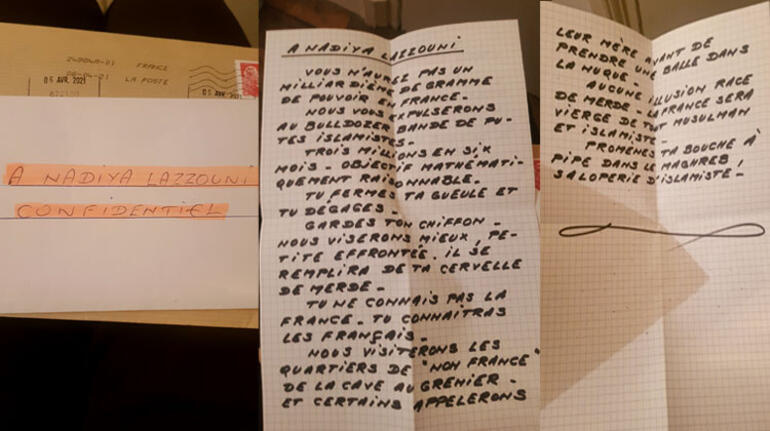 24004A-01 FRANCE
06-04-21 LA POSTE
06 AVR. 2021
A NADIYA LAZZOUNI
CONFIDENTIEL
A NADIYA LAZZOUNI
VOUS N'AUREZ PAS UN
MILLIARDIÈME DE GRAMME
DE POUVOIR EN FRANCE.
NOUS VOUS EXPULSERONS
AU BULLDOZER BANDE DE PU-
TES ISLAMISTES.
TROIS MILLIONS EN SIX
MOIS - OBJECTIF MATHÉMATI-
QUEMENT RAISONNABLE.
TU FERMES TA GUEULE ET
TU DÉGAGES -
GARDES TON CHIFFON -
NOUS VISERONS MIEUX, PE-
TITE EFFRONTÉE. IL SE
REMPLIRA DE TA CERVELLE
DE MERDE -
TU NE CONNAIS PAS LA
FRANCE. TU CONNAITRAS
LES FRANÇAIS -
NOUS VISITERONS LES
QUARTIERS DE "NON FRANCE"
DE LA CAVE AU GRENIER -
ET CERTAINS APPELERONS
LEUR MÈRE AVANT DE
PRENDRE UNE BALLE DANS
LA NUQUE -
AUCUNE ILLUSION RACE
DE MERDE - LA FRANCE SERA
VIERGE DE TOUT MUSULMAN
ET ISLAMISTE -
PROMENES TA BOUCHE À
PIPE DANS LE MAGHREB !
SALOPERIE D'ISLAMISTE -